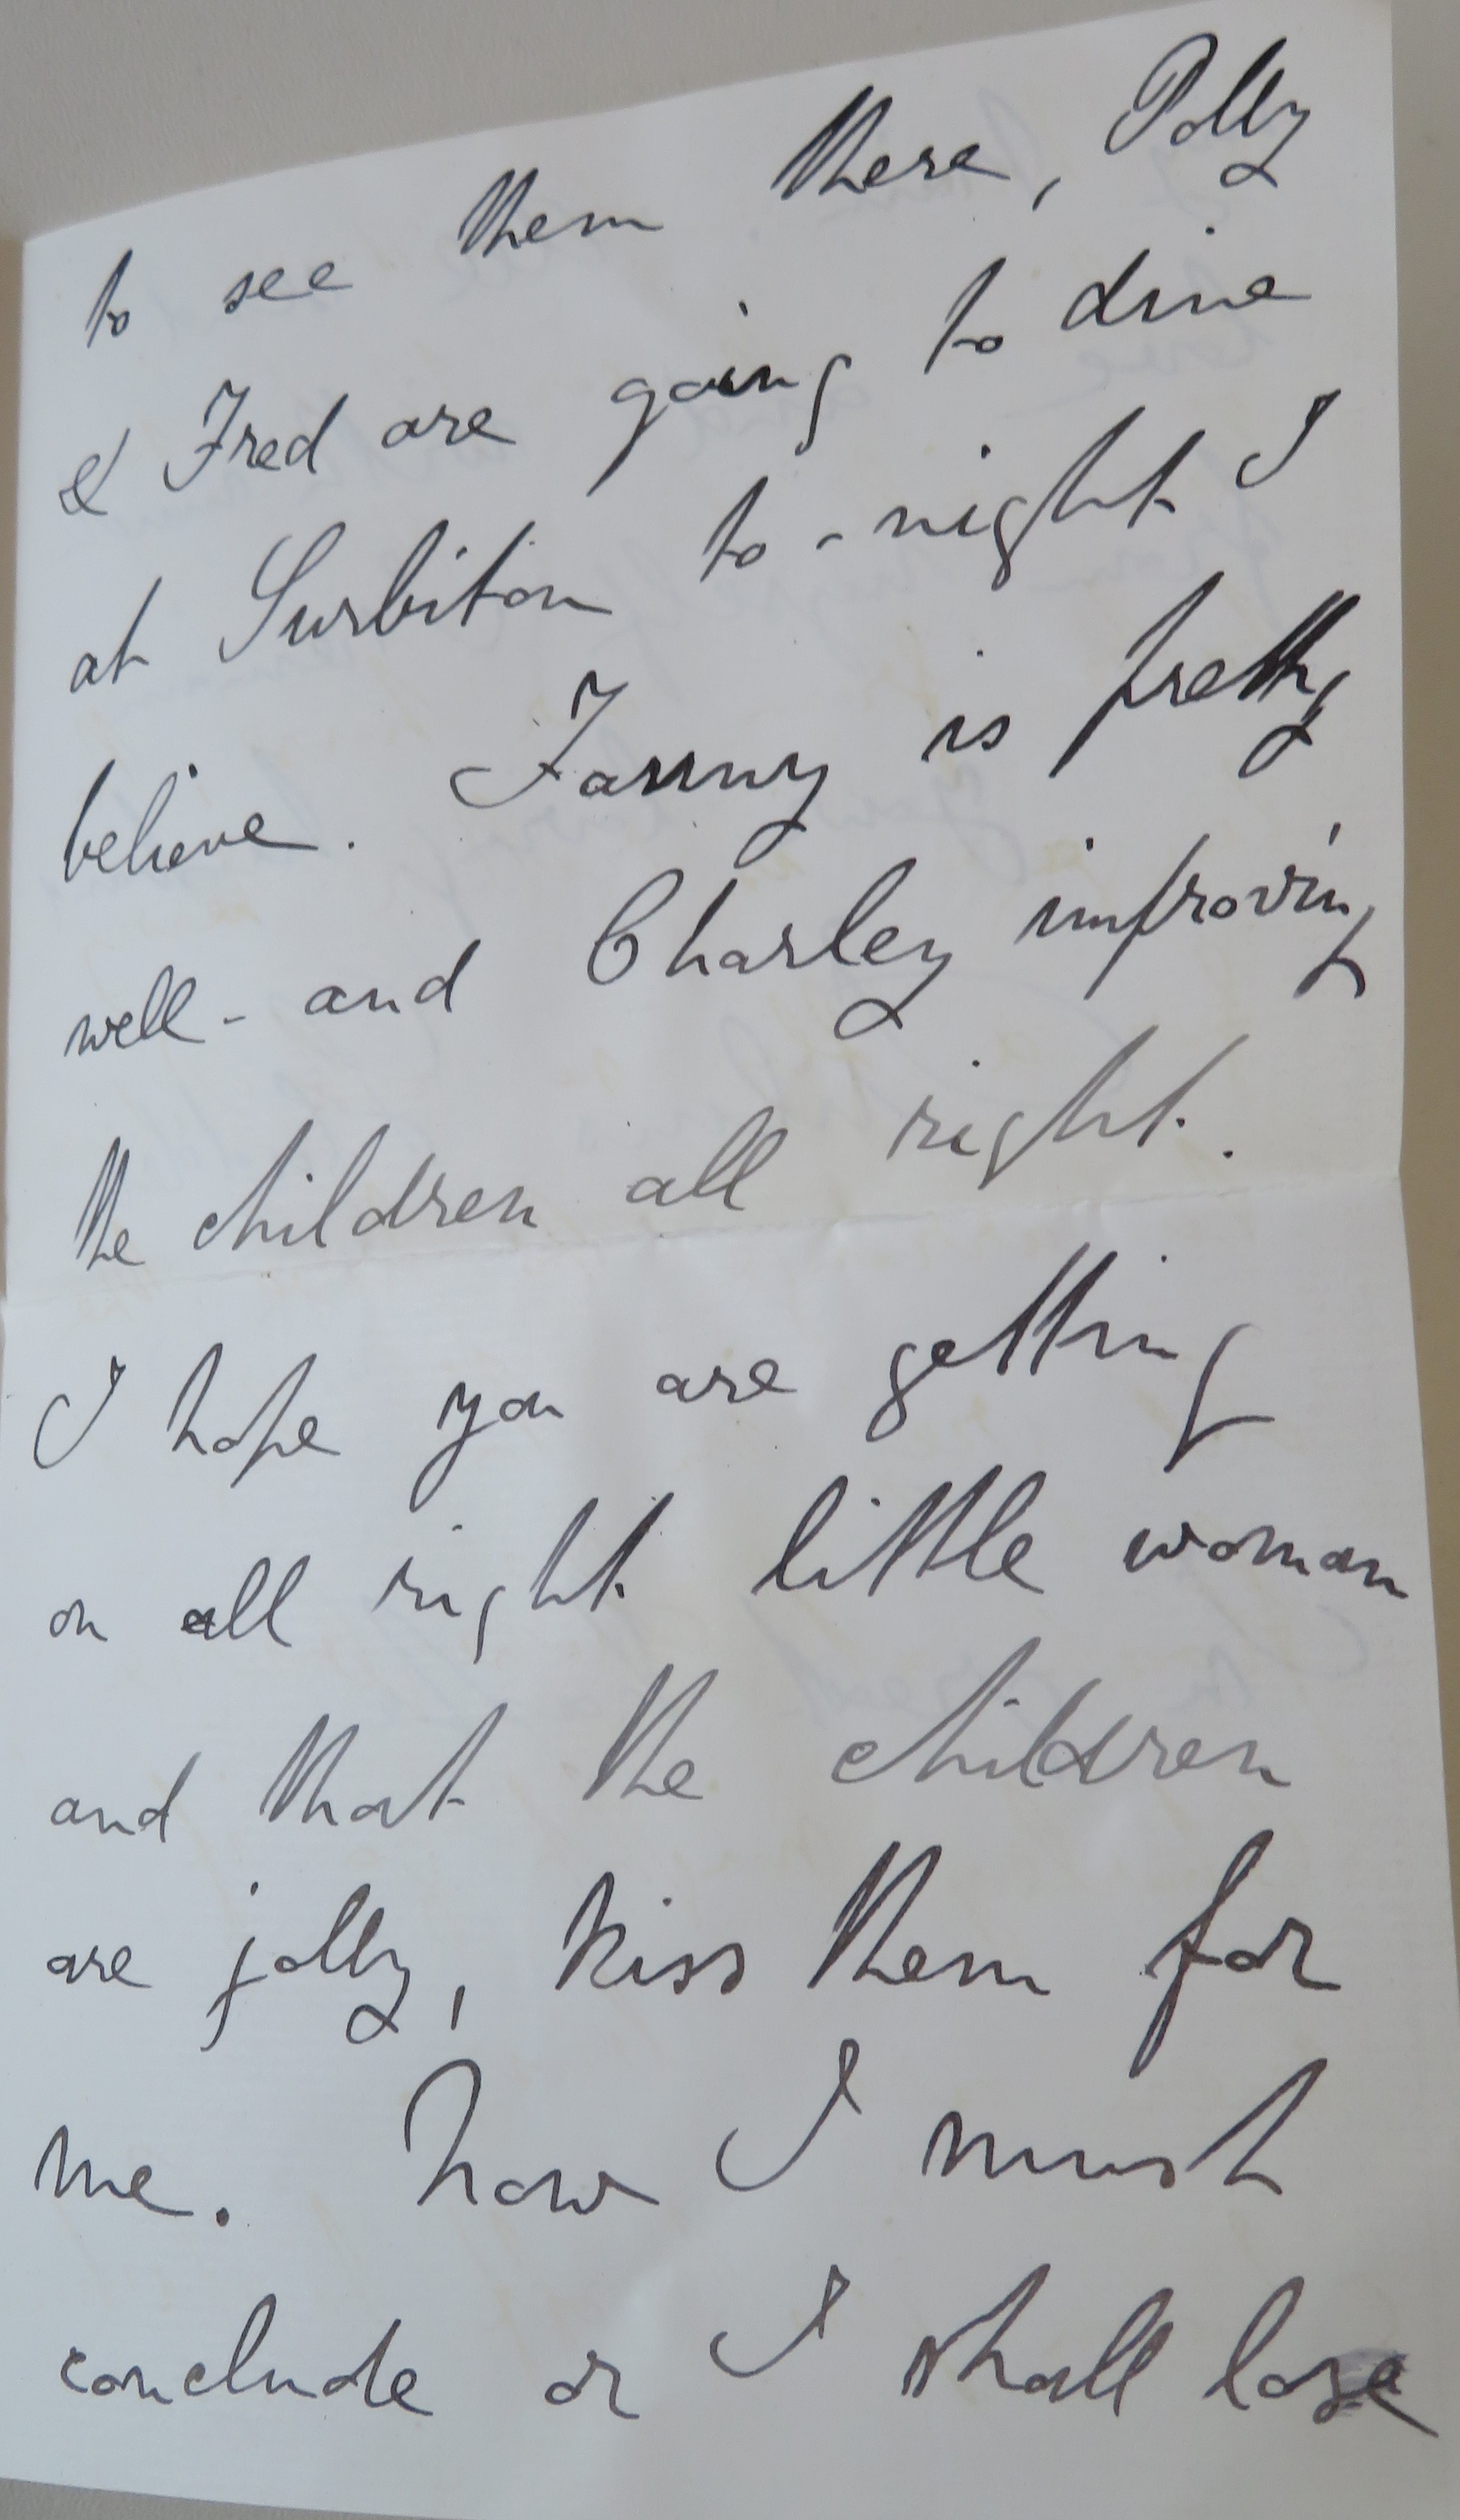 to see them there, Polly
& Fred are going to dine
at Surbiton to-night I
believe. Fanny is pretty
well - and Charley improving
the children all right.
I hope you are getting
on all right little woman
and that the children
are jolly, kiss them for
me. Now I must
conclude or I shall lose